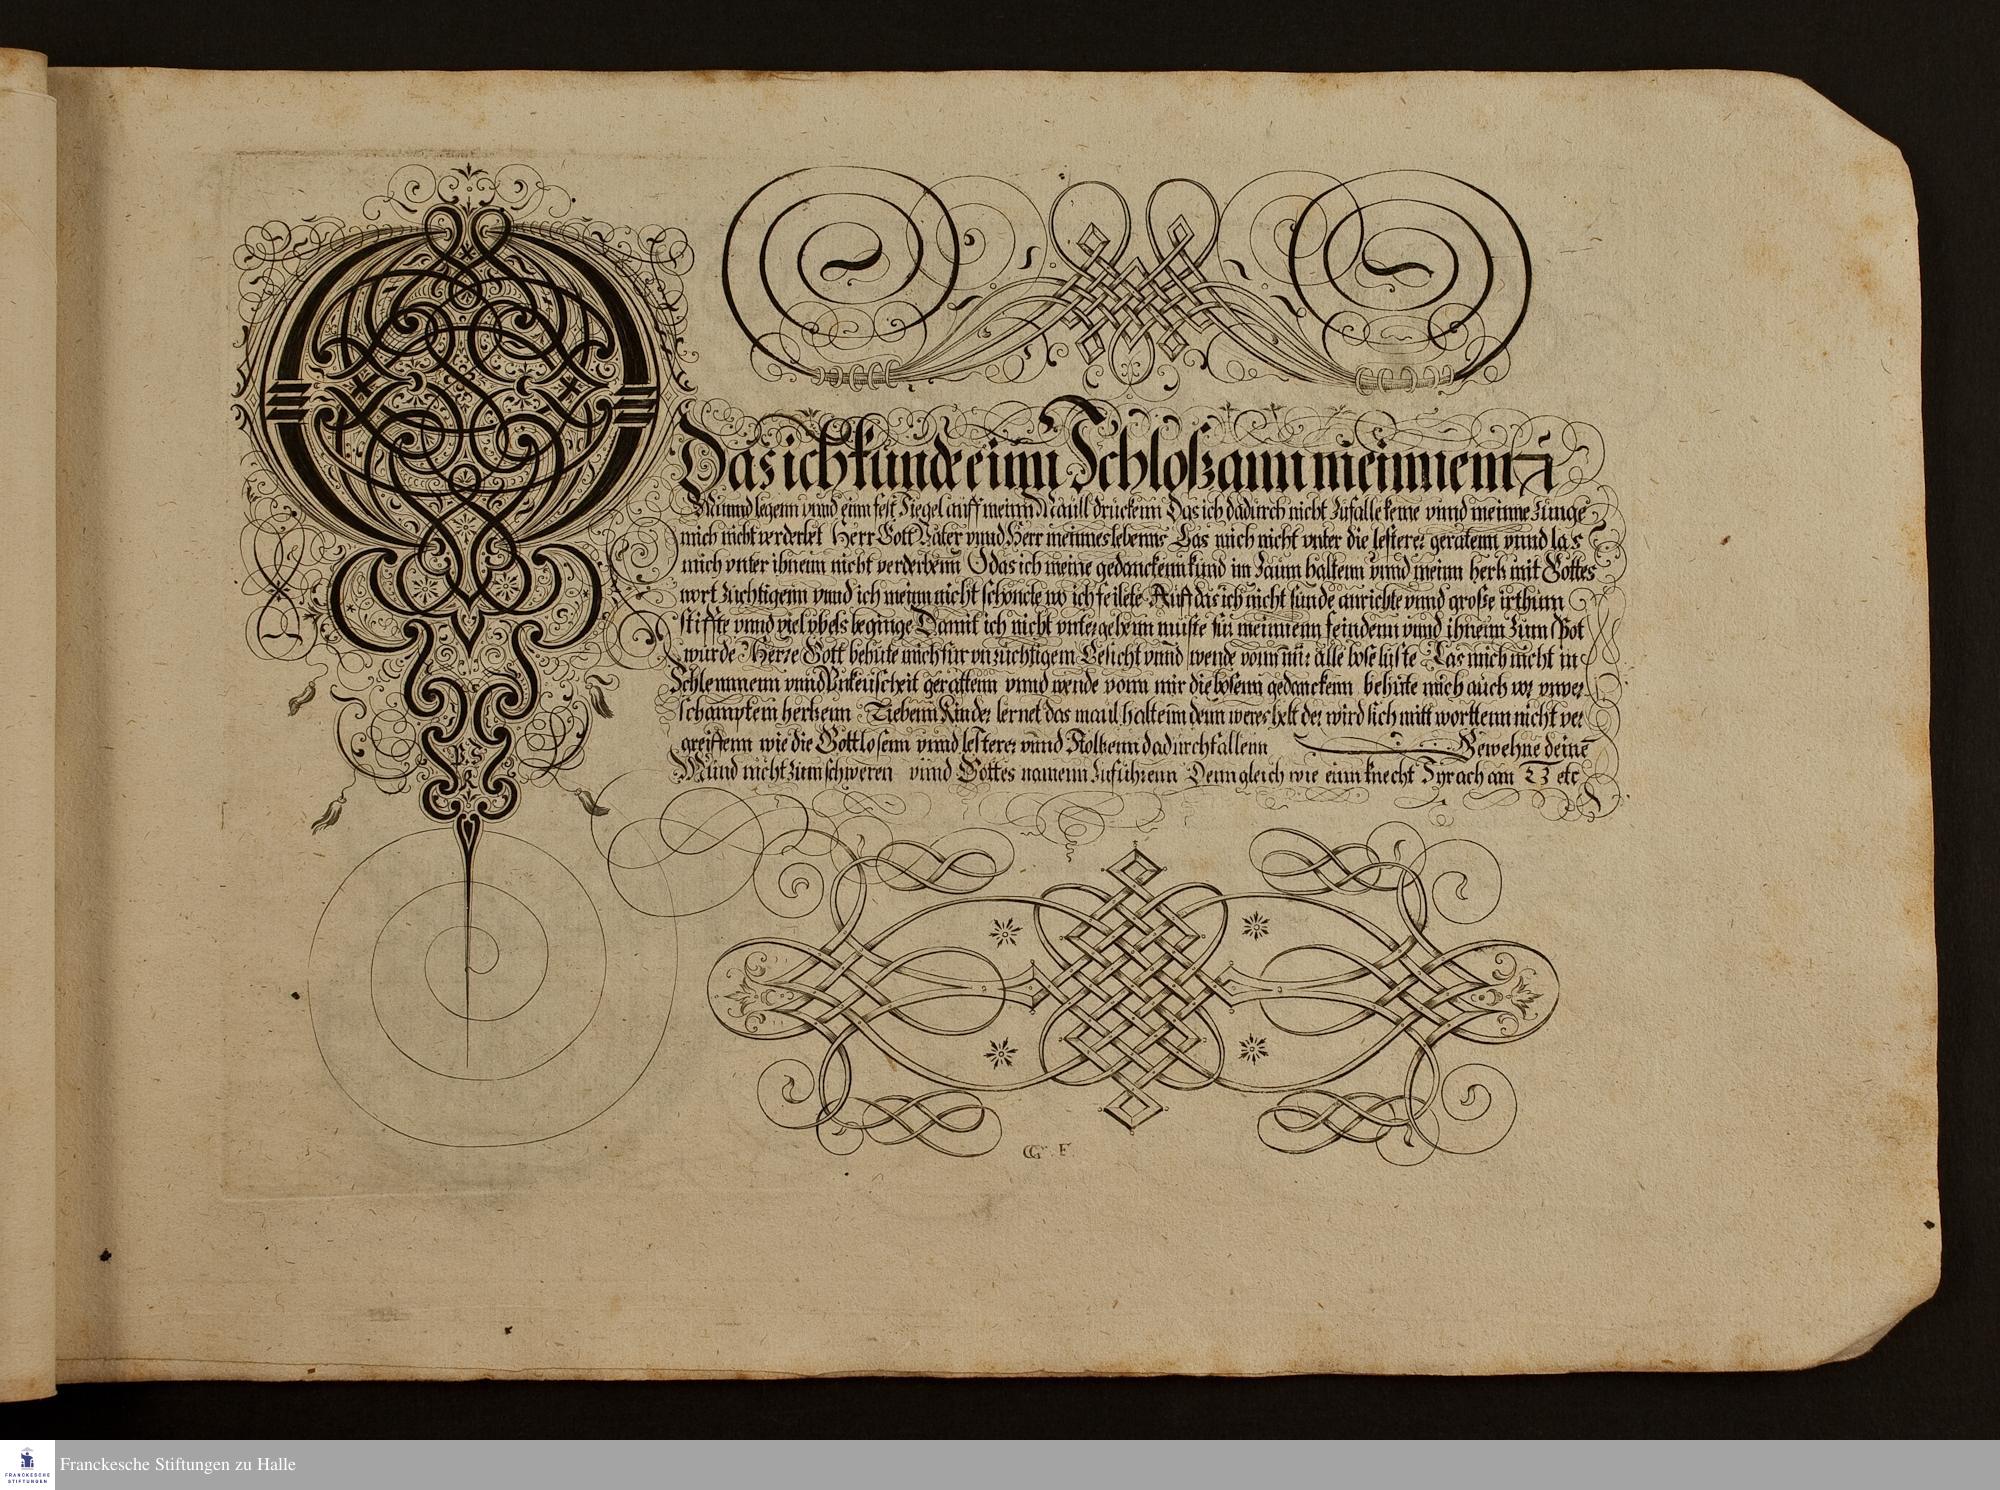 O
Das ich kunde einn Schloß ann meinnem
Munnd legenn vnnd einn fest Siegel auff meinn Maull druckenn Das ich dadurch nicht zufalle keme vnnd meinne Zunge
mich nicht verderbet Herr Gott Vater vnnd Herr meinnes lebenns Las mich nicht vnter die lesterer geratenn vnnd las
mich vnter ihnenn nicht verderbenn O das ich meine gedanckenn kund im Zaum haltenn vnnd meinn hertz mit Gottes
wort züchtigenn vnnd ich meinn nicht schonete wo ich feilete Auff das ich nicht sunde anrichte vnnd große irthum
stiffte vnnd viel vbels beginge Damit ich nicht vntergehenn muste für meinnenn feindenn vnnd ihnenn zum Spot
wurde Herre Gott behüte mich für vnzüchtigem Gesicht vnnd wende vonn mir alle bose lüste Las mich nicht in
Schlemmenn vnnd Vnkeuscheit gerattenn vnnd wende vonn mir die bosenn gedanckenn behüte mich auch vor vnver
schamptem hertzenn Liebenn Kinder lernet das maul haltenn denn wer es helt der wird sich mitt worttenn nicht ver
greiffenn wie die Gottlosenn vnnd lesterer vnnd Stoltzenn dadurch fallenn Gewehne deine
Mund nicht zum schweren vnnd Gottes namenn zuführenn Denn gleich wie einn knecht Syrach am 23 etc
P.S.
K
CG. F.
Franckesche Stiftungen zu Halle
FRANCKESCHE
STIFTUNGEN